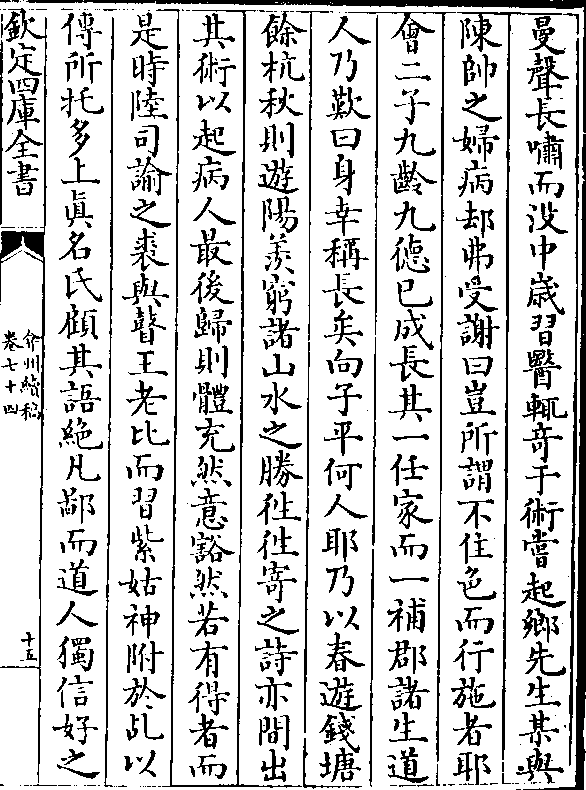 曼聲長嘯而没中嵗習醫輒竒于術嘗起鄉先生某與
陳帥之婦病却弗受謝曰豈所謂不住色而行施者耶
會二子九齡九德已成長其一任家而一補郡諸生道
人乃歎曰身幸稱長矣向子平何人耶乃以春遊錢塘
餘杭秋則遊陽羨窮諸山水之勝徃徃寄之詩亦間出
其術以起病人最後歸則體充然意豁然若有得者而
是時陸司諭之裘與瞽王老比而習紫姑神附於乩以
傳所托多上眞名氏顧其語絶凡鄙而道人獨信好之
欽定四庫全書
弇州續稿
卷七十四
十五